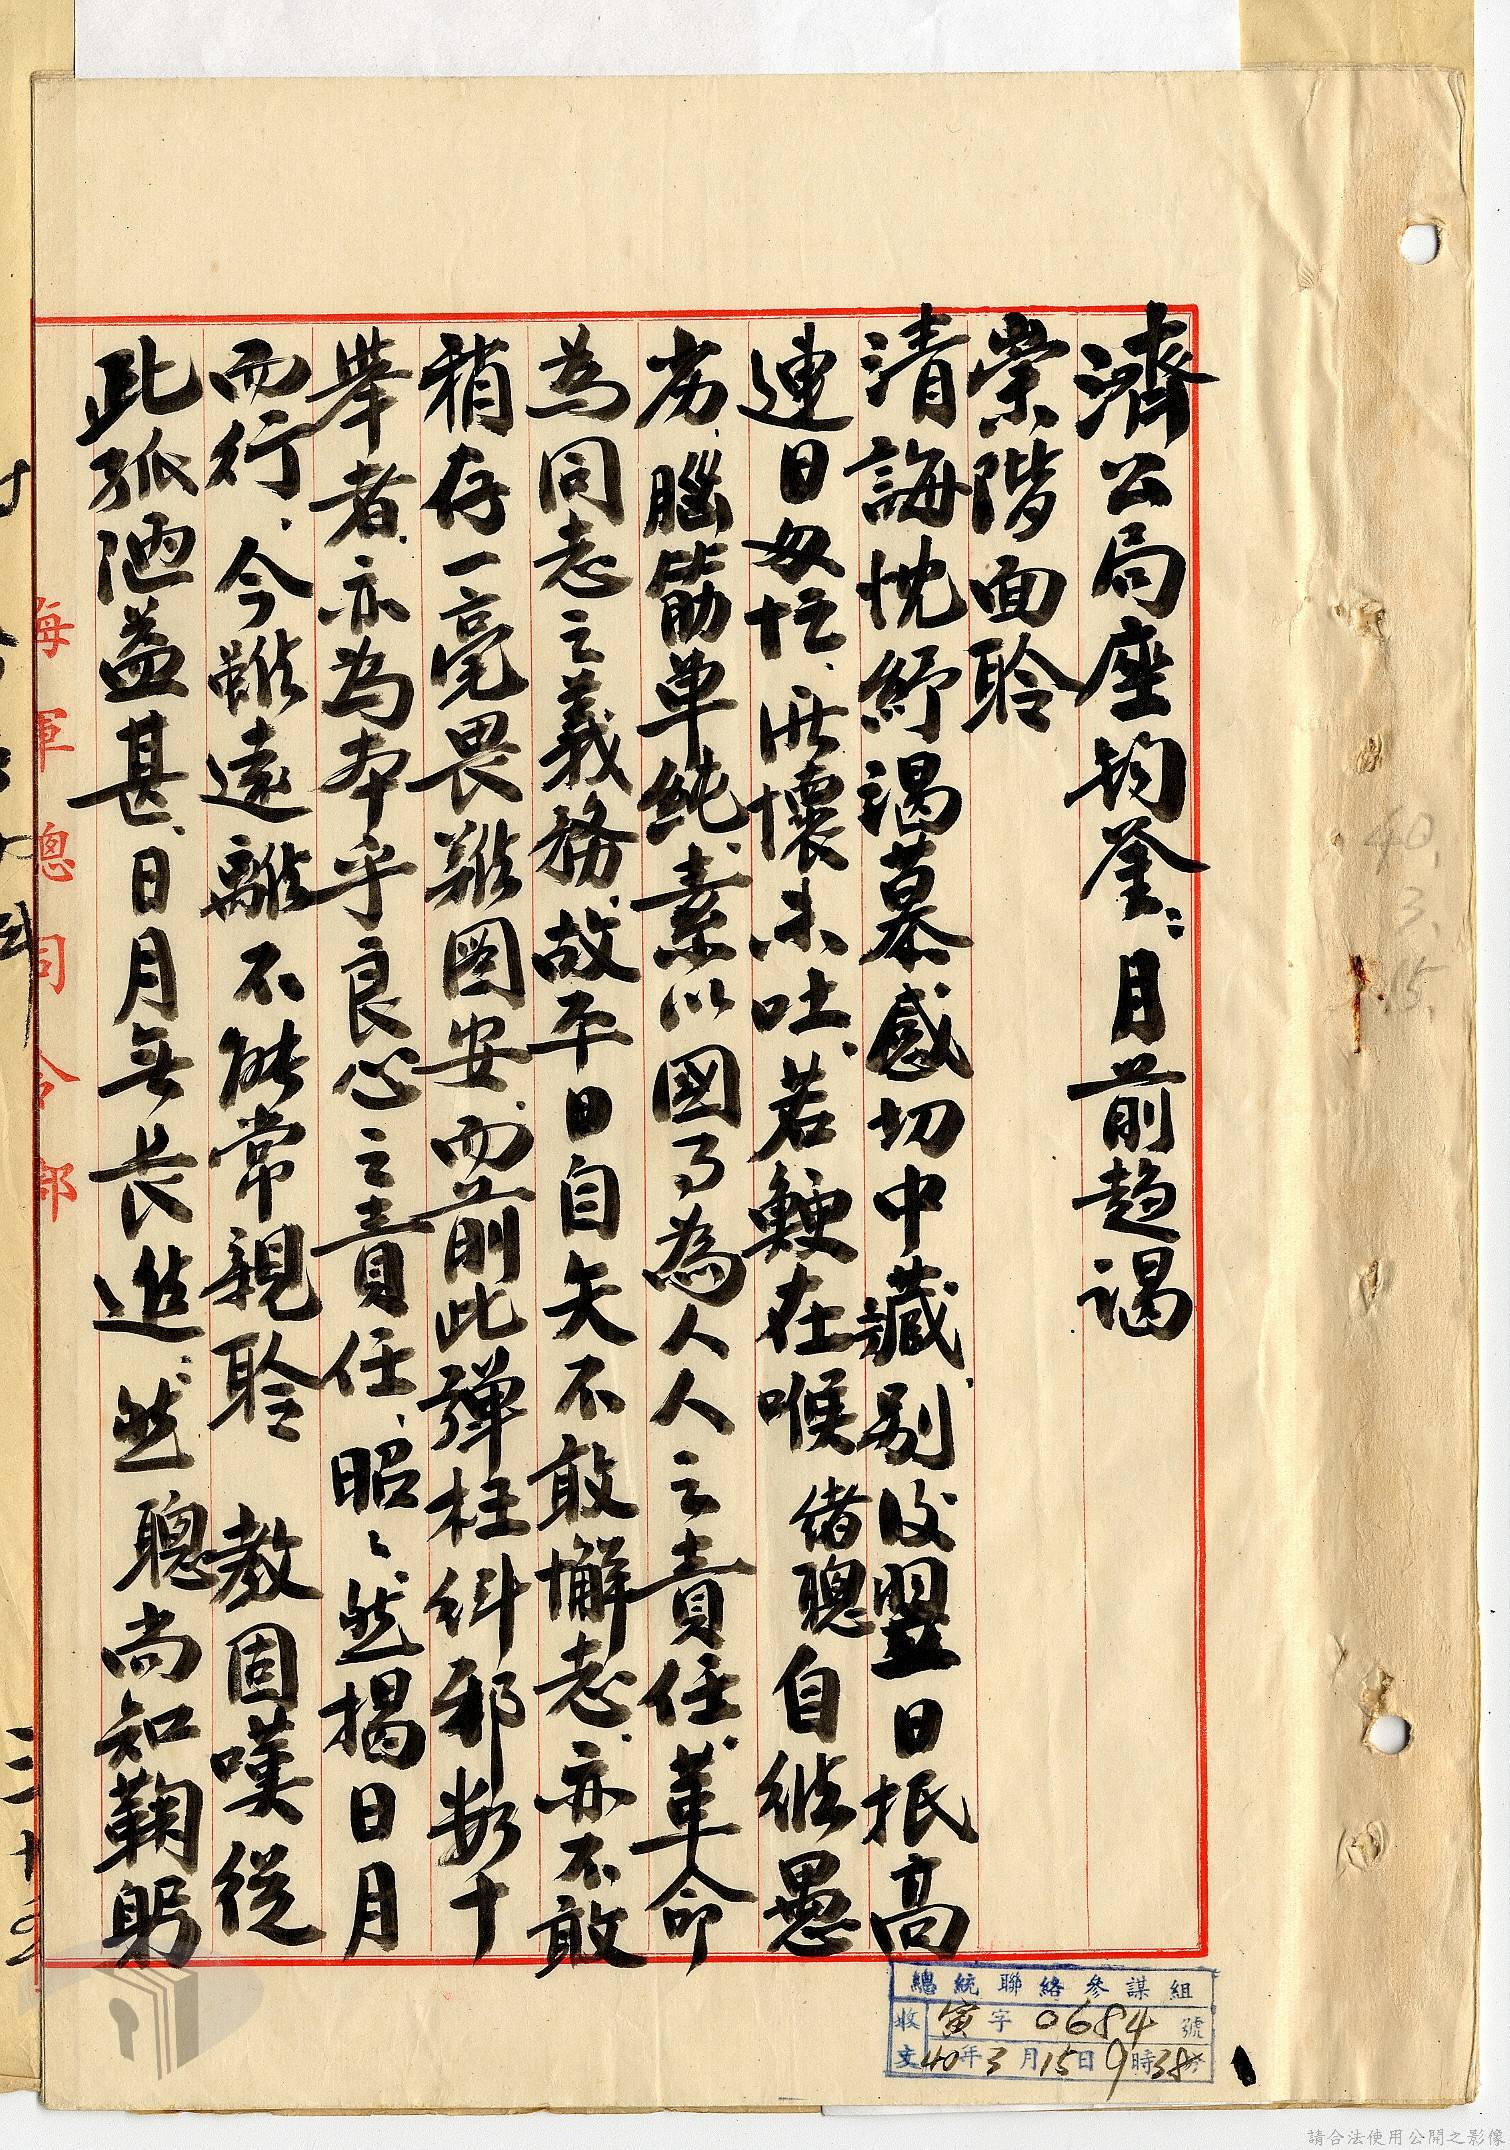 濟公局座鈞鉴：月前趨謁
崇階面聆
清誨忱紓謁慕感切中藏別後翌日抵高
連日匆忙、所懷未吐、若鯁在喉緒聰自維愚
劣、腦筋單純、素以國事為人人之責任、革命
為同志之義務、故平日自矢不敢懈志、亦不敢
稍存一毫畏難圖安、而前此彈枉糾邪数十
舉者、亦為本乎良心之責任、昭々然揭日月
而行、今雖遠離不能常親聆 教固嘆從
此孤陋益甚、日月無長進、然聰尚知鞠躬
海軍總司令部
總統聯絡參謀組
收文 寅字 0684 號
40年3月15日9時38分
40.
3.
15.
請合法使用公開之影像